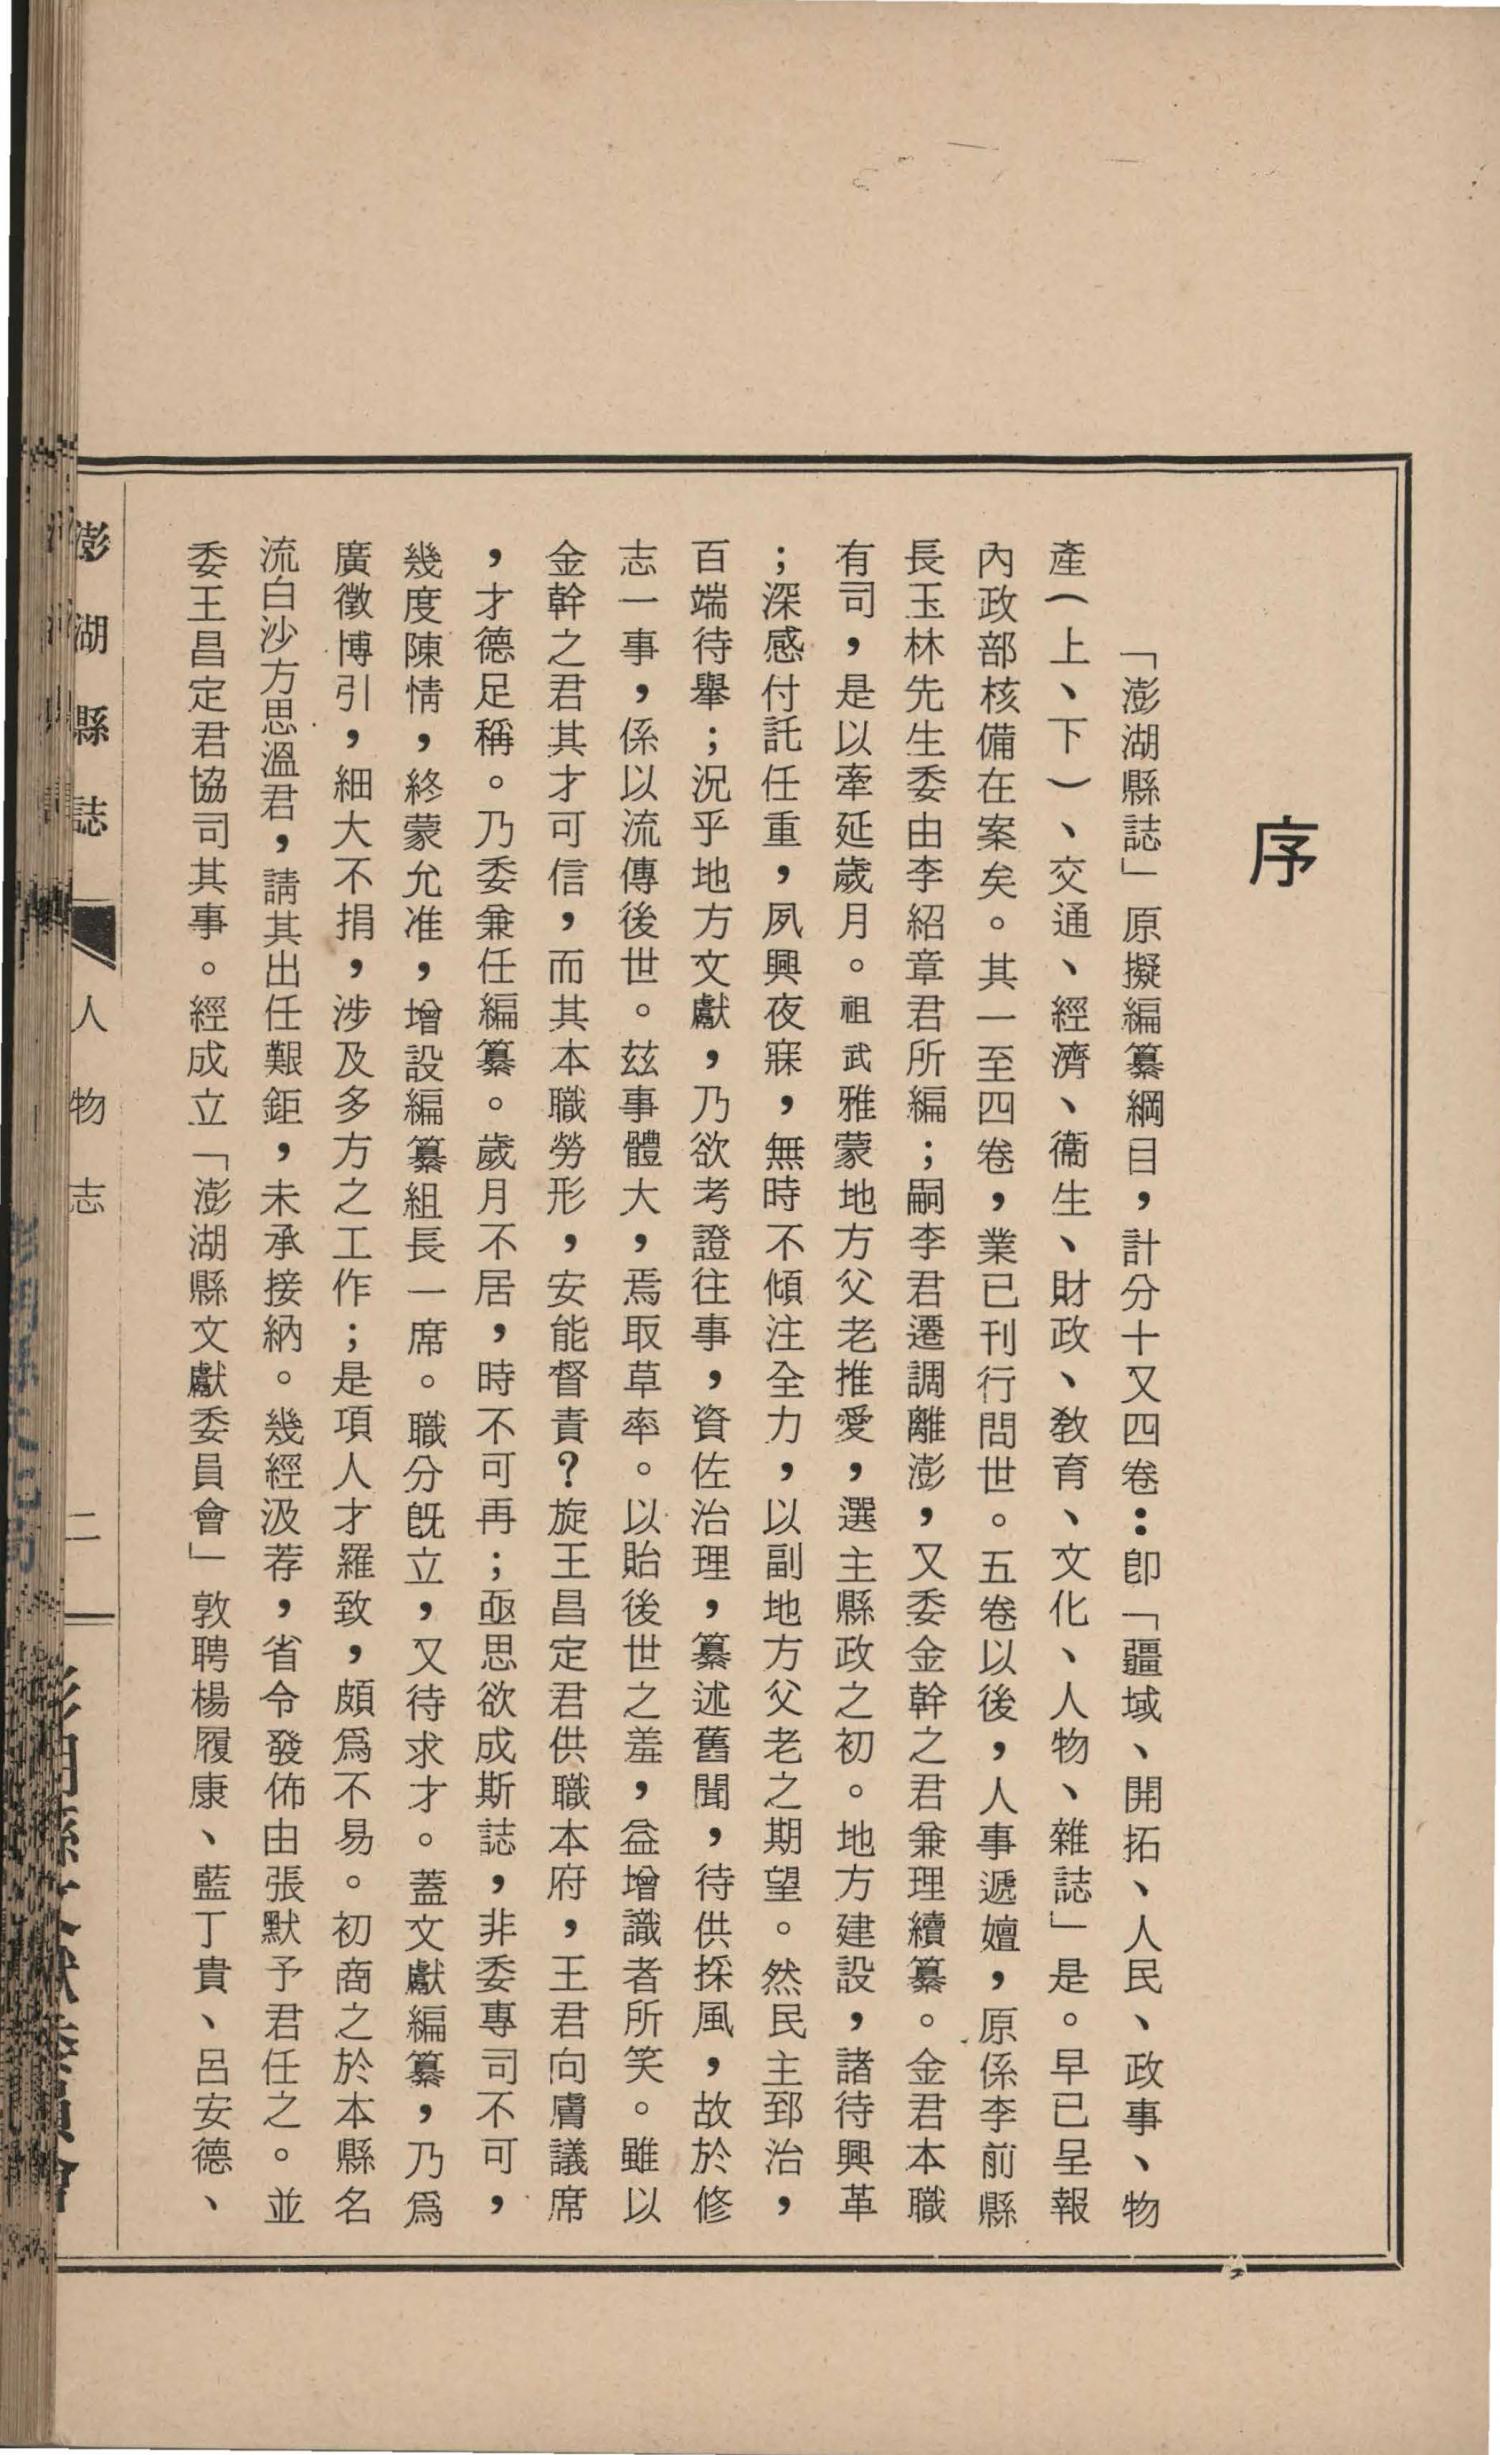 序
「澎湖縣誌」原擬編纂綱目，計分十又四卷：卽「疆域、開拓、人民、政事、物
產（上、下）、交通、經濟、衞生、財政、教育、文化、人物、雜誌」是。早已呈報
內政部核備在案矣。其一至四卷，業已刊行問世。五卷以後，人事遞嬗，原係李前縣
長玉林先生委由李紹章君所編；嗣李君遷調離澎，又委金幹之君兼理續纂。金君本職
有司，是以牽延歲月。祖武雅蒙地方父老推愛，選主縣政之初。地方建設，諸待興革
；深感付託任重，夙興夜寐，無時不傾注全力，以副地方父老之期望。然民主郅治，
百端待舉；況乎地方文獻，乃欲考證往事，資佐治理，纂述舊聞，待供採風，故於修
志一事，係以流傳後世。茲事體大，焉取草率。以貽後世之羞，益增識者所笑。雖以
金幹之君其才可信，而其本職勞形，安能督責？旋王昌定君供職本府，王君向膺議席
，才德足稱。乃委兼任編纂。歲月不居，時不可再；亟思欲成斯誌，非委專司不可，
幾度陳情，終蒙允准，增設編纂組長一席。職分旣立，又待求才。蓋文獻編纂，乃爲
廣徵博引，細大不捐，涉及多方之工作；是項人才羅致，頗爲不易。初商之於本縣名
流白沙方思溫君，請其出任艱鉅，未承接納。幾經汲荐，省令發佈由張默予君任之。並
委王昌定君協司其事。經成立「澎湖縣文獻委員會」敦聘楊履康、藍丁貴、呂安德、
澎湖縣誌 人物志 二